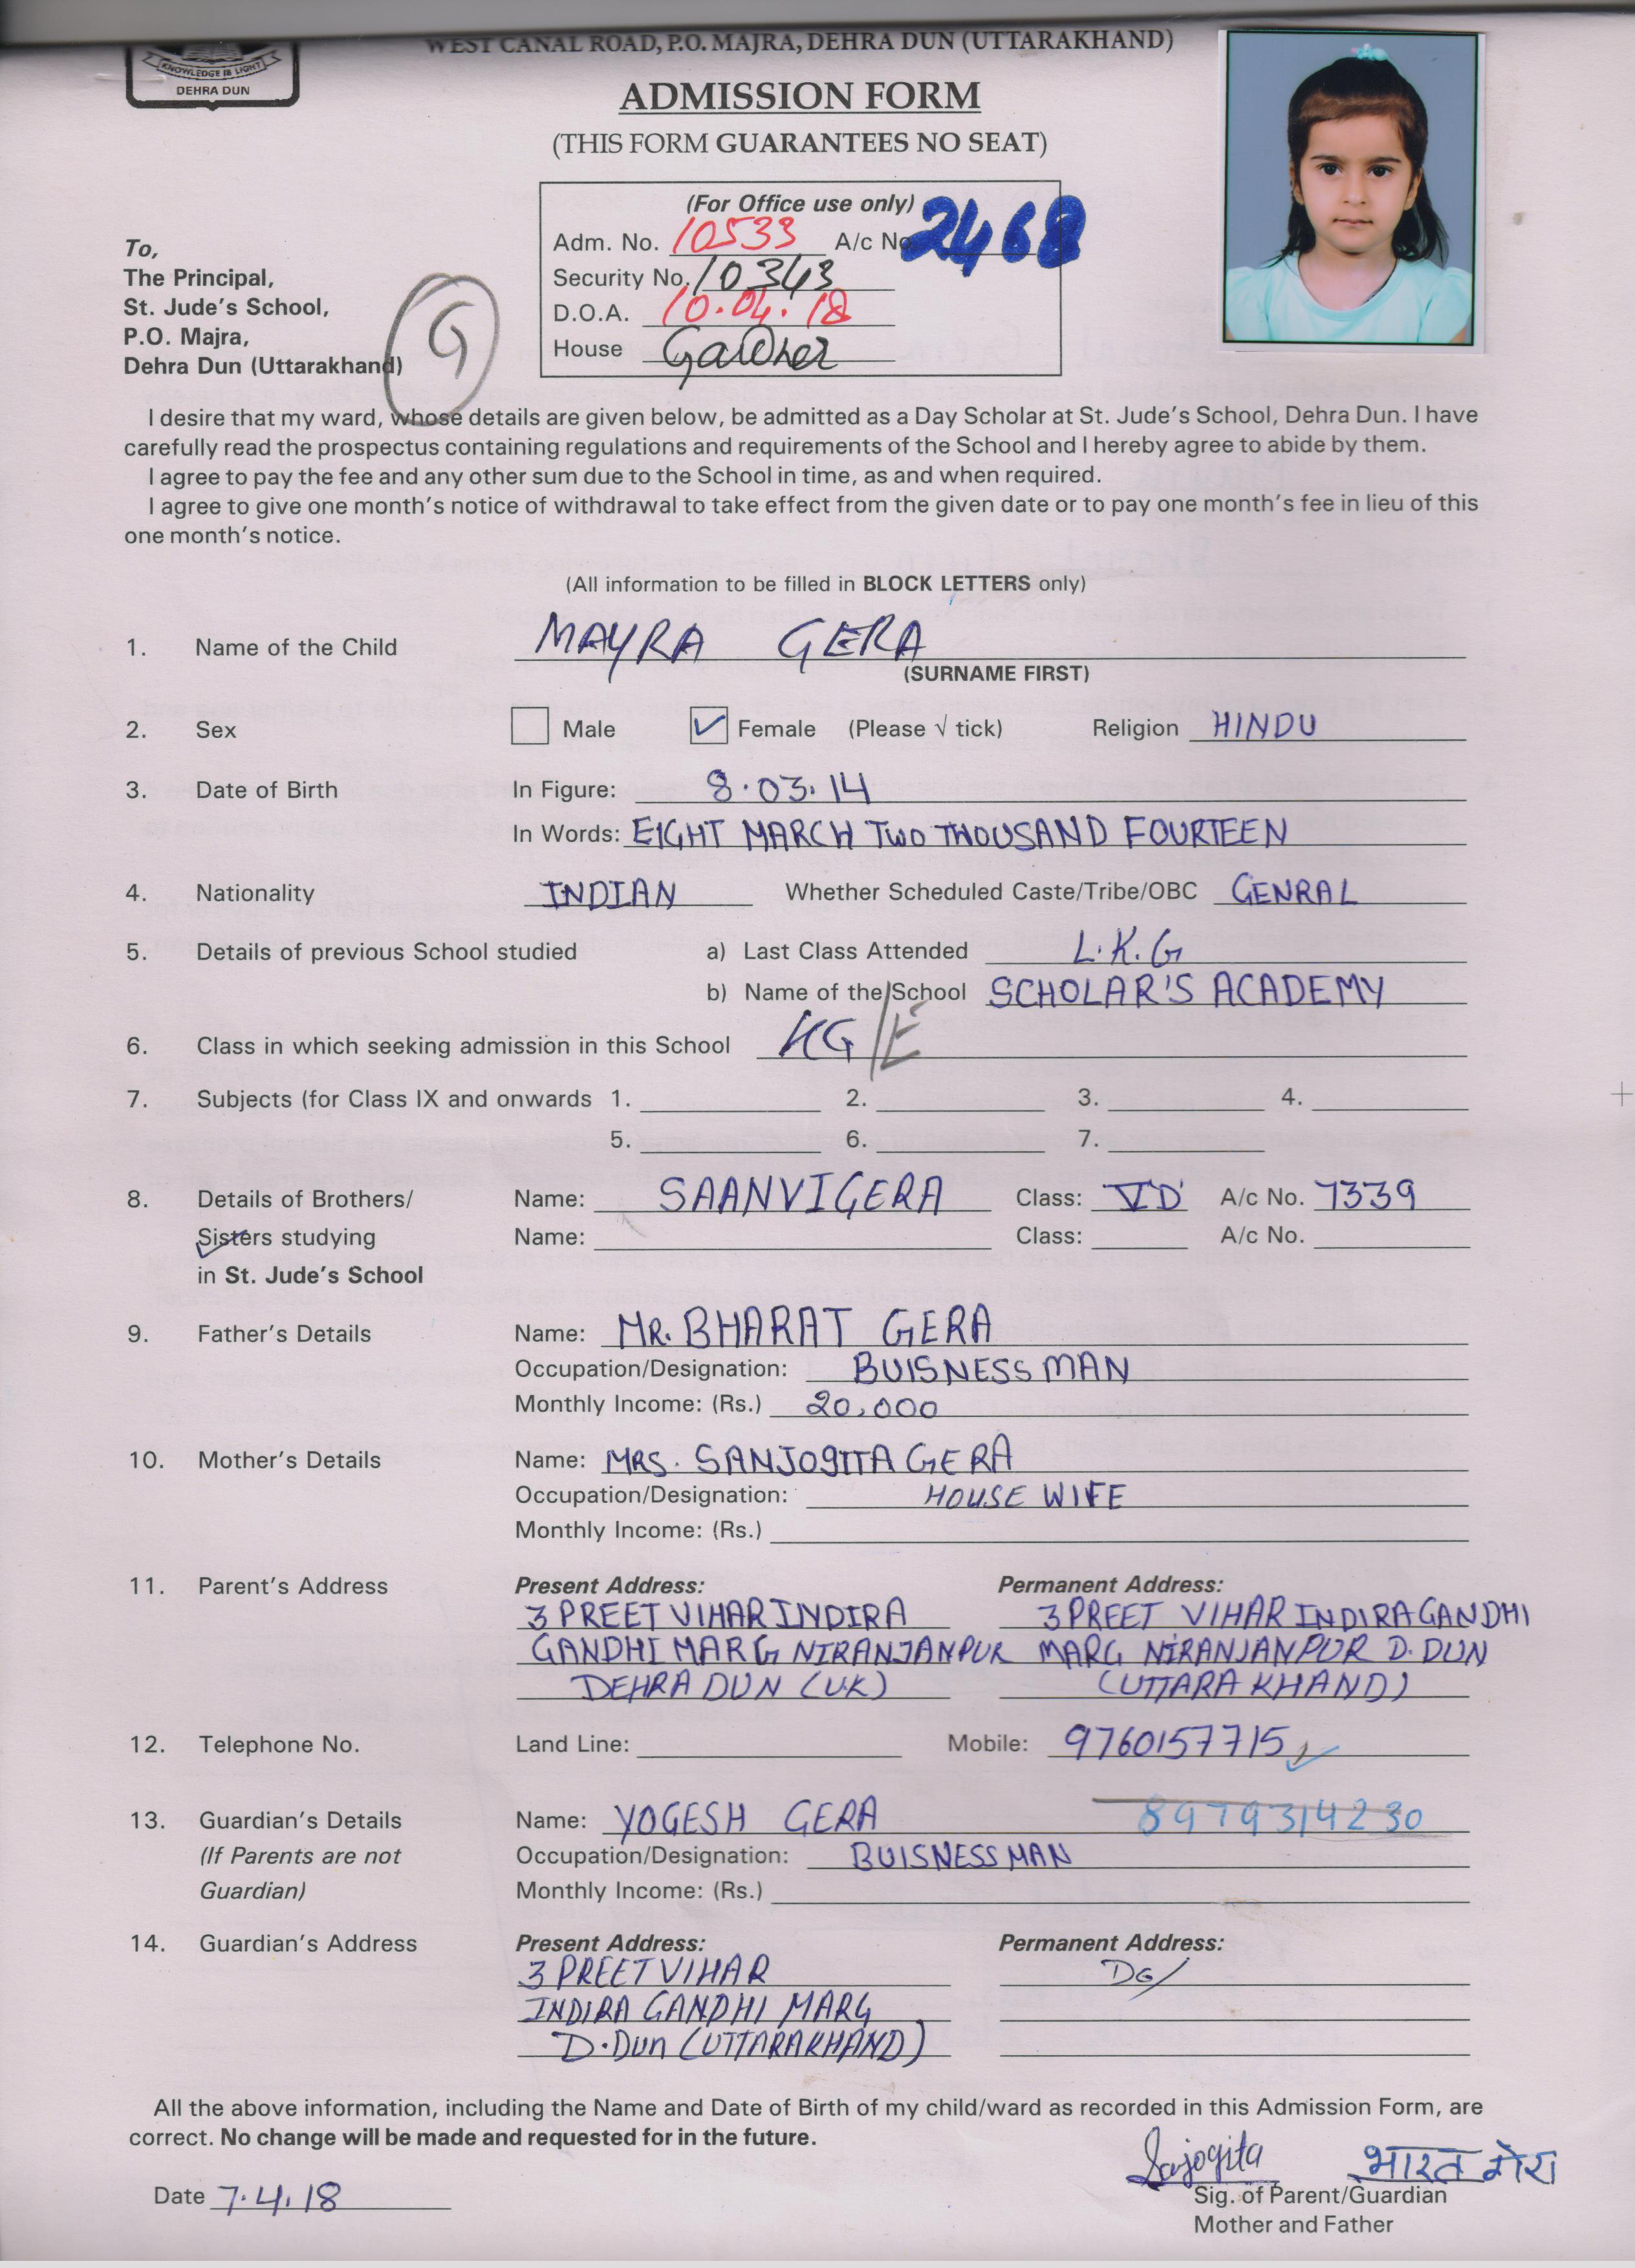 WEST CANAL ROAD, P.O. MAJRA, DEHRA DUN (UTTARAKHAND)
KNOWLEDGE IS LIGHT
DEHRA DUN
ADMISSION FORM
(THIS FORM GUARANTEES NO SEAT)
(For Office use only)
Adm. No. 10533 A/c No 2468
Security No. 10343
D.O.A. 10.04.18
House Gardner
To,
The Principal,
St. Jude's School,
P.O. Majra,
Dehra Dun (Uttarakhand)
G
I desire that my ward, whose details are given below, be admitted as a Day Scholar at St. Jude's School, Dehra Dun. I have
carefully read the prospectus containing regulations and requirements of the School and I hereby agree to abide by them.
I agree to pay the fee and any other sum due to the School in time, as and when required.
I agree to give one month's notice of withdrawal to take effect from the given date or to pay one month's fee in lieu of this
one month's notice.
(All information to be filled in BLOCK LETTERS only)
1. Name of the Child MAYRA GERA
(SURNAME FIRST)
2. Sex Male Female (Please √ tick) Religion HINDU
3. Date of Birth In Figure: 8.03.14
In Words: EIGHT MARCH TWO THOUSAND FOURTEEN
4. Nationality INDIAN Whether Scheduled Caste/Tribe/OBC GENRAL
5. Details of previous School studied a) Last Class Attended L.K.G
b) Name of the School SCHOLAR'S ACADEMY
6. Class in which seeking admission in this School KG/E
7. Subjects (for Class IX and onwards 1. 2. 3. 4.
5. 6. 7.
8. Details of Brothers/ Name: SAANVI GERA Class: VD A/c No. 7339
Sisters studying Name: Class: A/c No.
in St. Jude's School
9. Father's Details Name: MR. BHARAT GERA
Occupation/Designation: BUISNESS MAN
Monthly Income: (Rs.) 20,000
10. Mother's Details Name: MRS. SANJOGITA GERA
Occupation/Designation: HOUSE WIFE
Monthly Income: (Rs.)
11. Parent's Address Present Address: Permanent Address:
3 PREET VIHAR INDIRA 3 PREET VIHAR INDIRA GANDHI
GANDHI MARG NIRANJANPUR MARG NIRANJANPUR D.DUN
DEHRA DUN (U.K) (UTTARA KHAND)
12. Telephone No. Land Line: Mobile: 9760157715
13. Guardian's Details Name: YOGESH GERA 8979314230
(If Parents are not Occupation/Designation: BUISNESS MAN
Guardian) Monthly Income: (Rs.)
14. Guardian's Address Present Address: Permanent Address:
3 PREET VIHAR
INDIRA GANDHI MARG
D.Dun (UTTARAKHAND)
All the above information, including the Name and Date of Birth of my child/ward as recorded in this Admission Form, are
correct. No change will be made and requested for in the future.
Sanjogita भारत गेरा
Date 7.4.18 Sig. of Parent/Guardian
Mother and Father